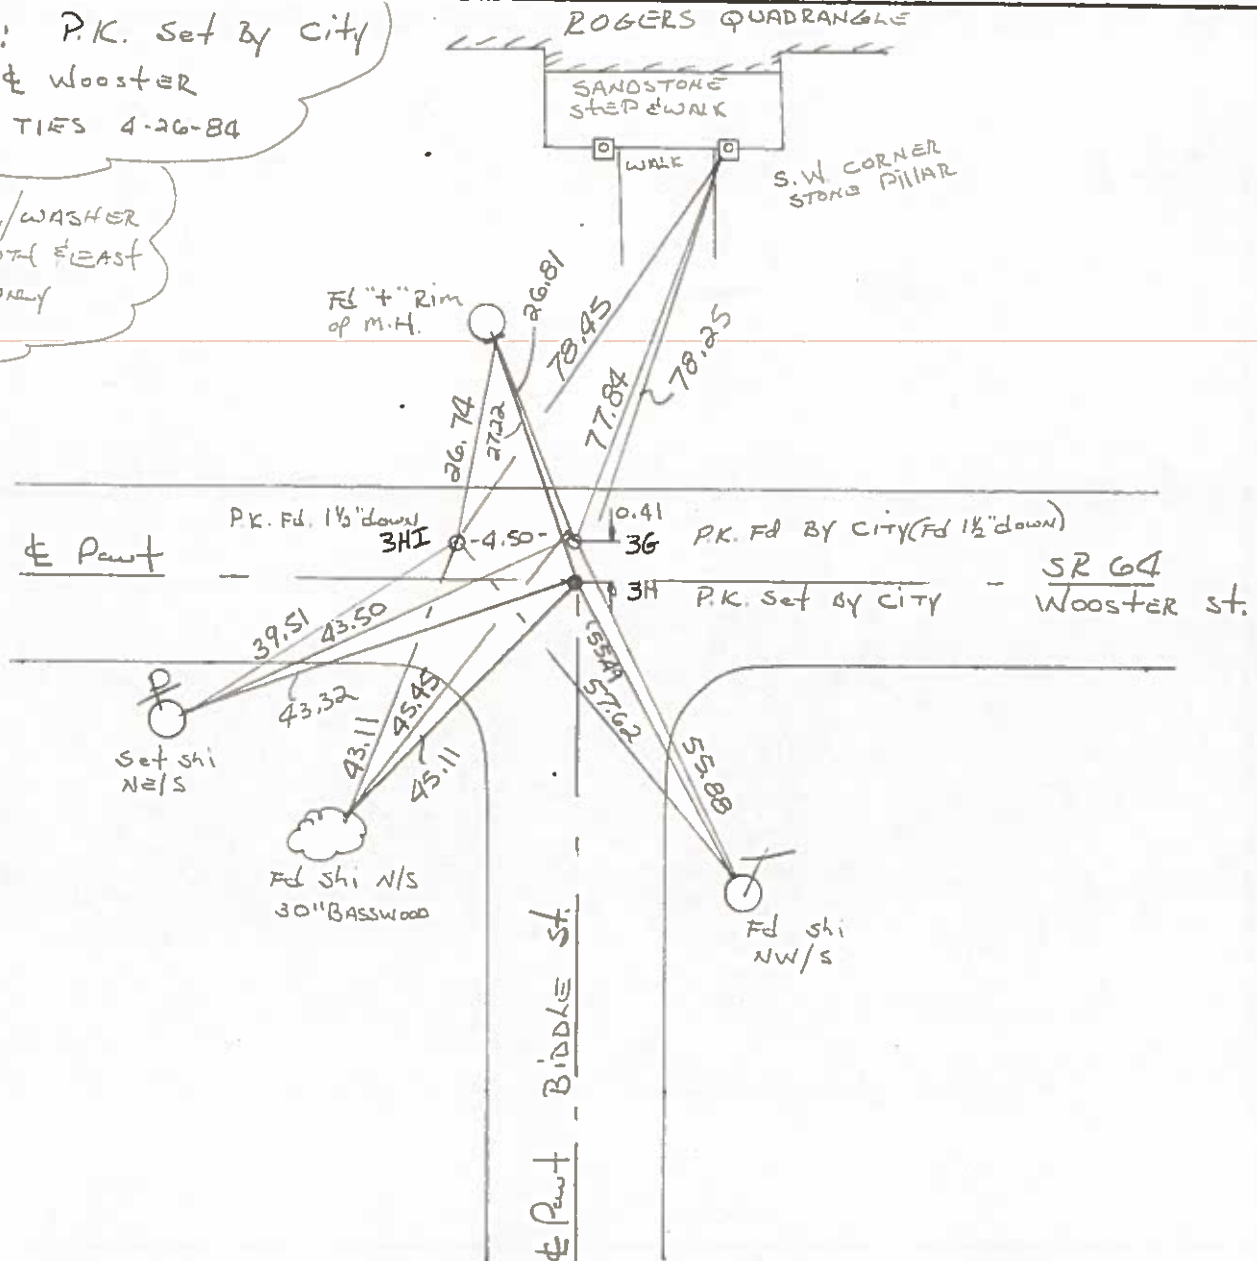 : P.K. Set By City
℄ Wooster
TIES 4-26-84
/WASHER
& EAST
ROGERS QUADRANGLE
SANDSTONE
STEP & WALK
WALK
S.W. CORNER
STONE PILLAR
Fd "+" Rim
of M.H.
26.81
78.45
78.25
77.84
26.74
27.22
P.K. Fd. 1½" down
3HI
-4.50-
0.41
3G
P.K. Fd By City (Fd 1½" down)
℄ Pavt
3H
P.K. Set By City
SR 64
Wooster St.
39.51
43.50
43.32
55.49
57.62
55.88
43.11
45.45
45.11
Set shi
NE/S
Fd shi N/S
30" BASSWOOD
Fd shi
NW/S
℄ Pavt - BIDDLE St.